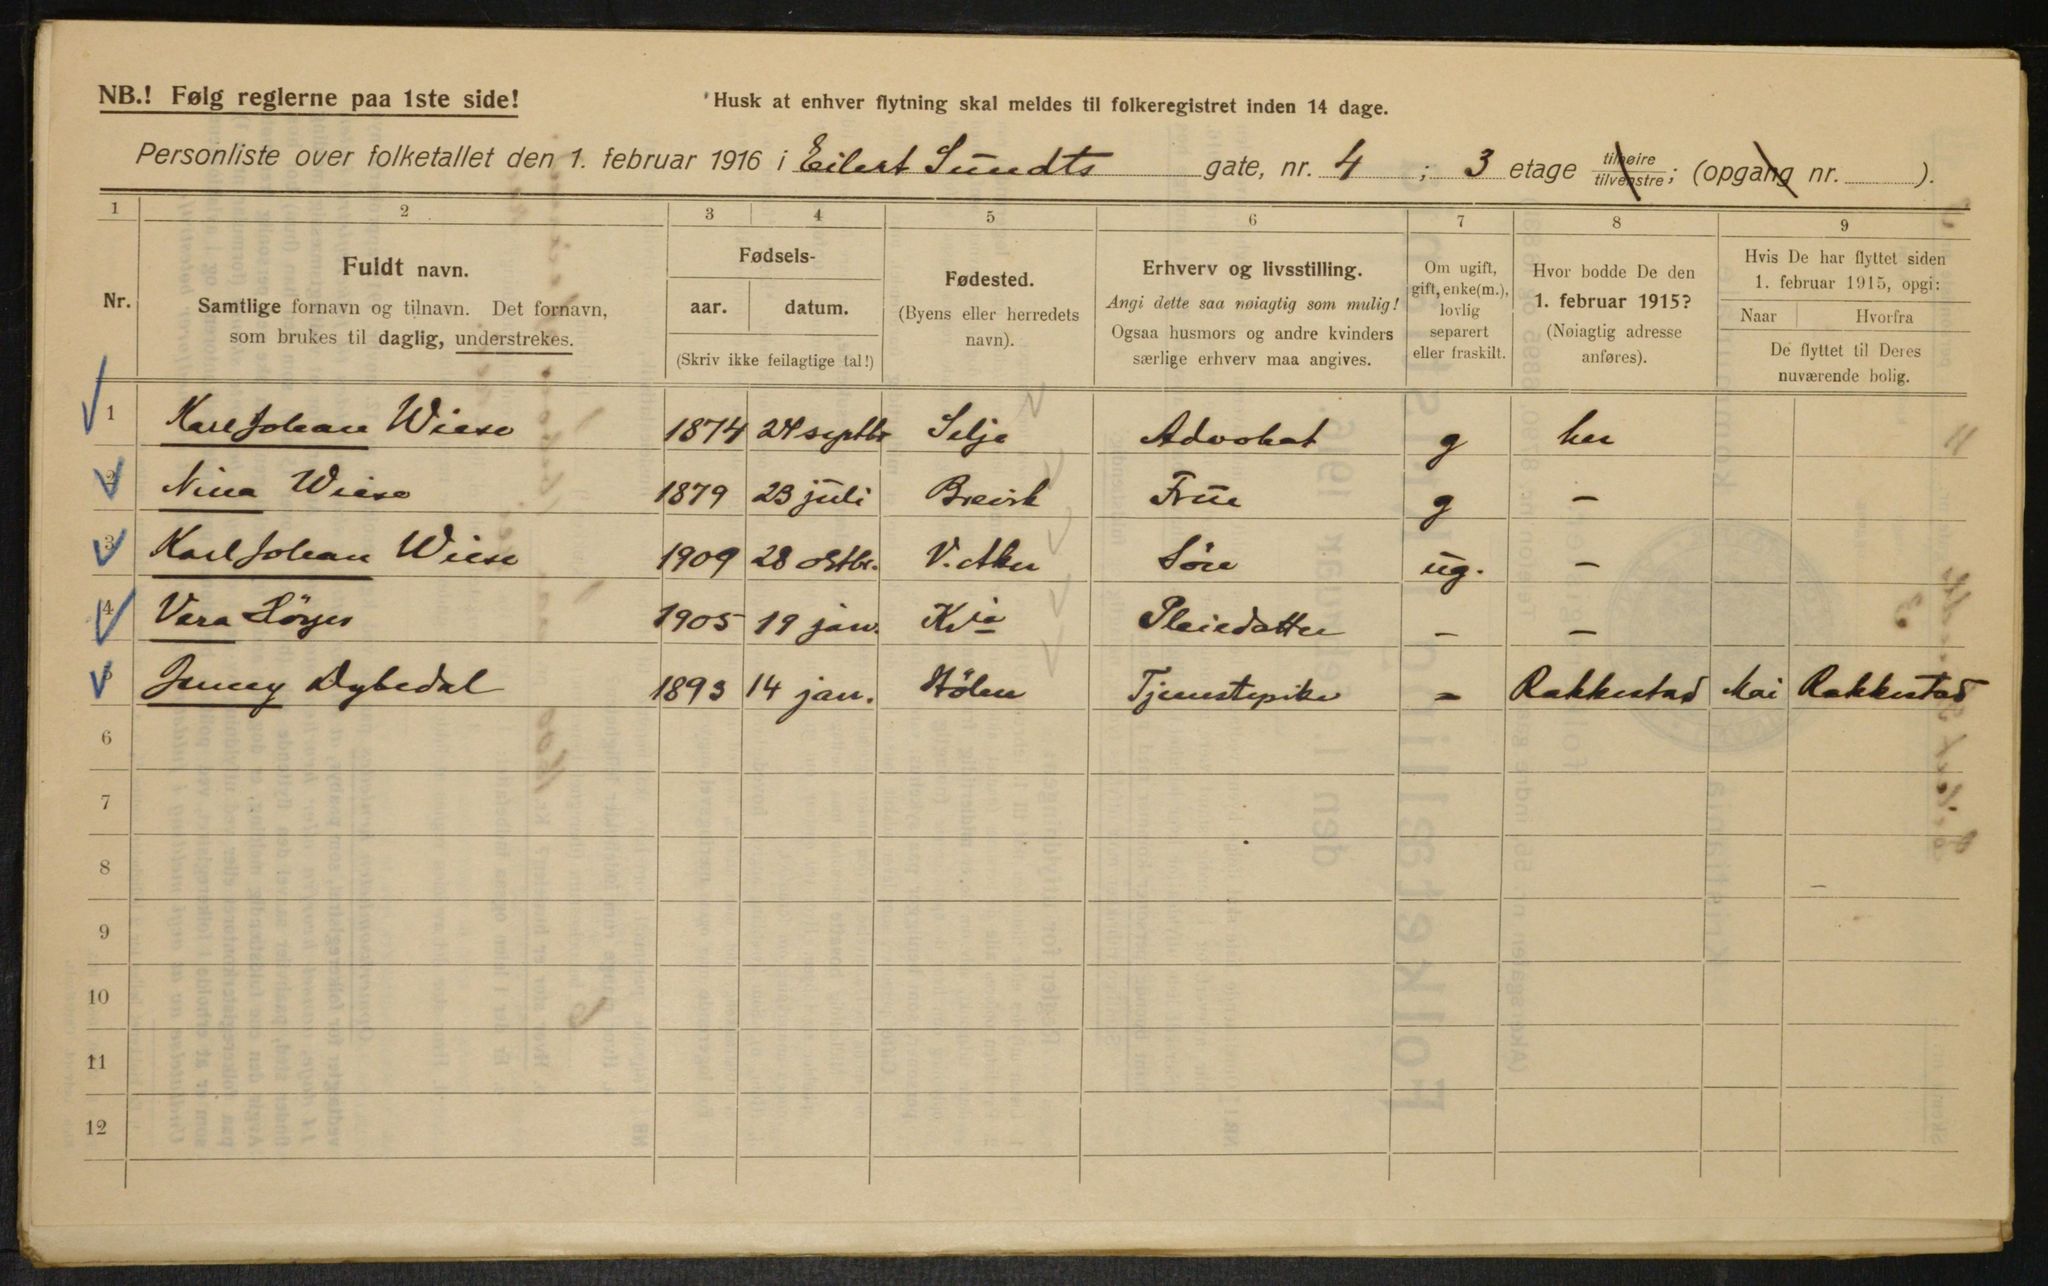 NB.! Følg reglerne paa 1ste side!
Husk at enhver flytning skal meldes til folkeregistret inden 14 dage.
Personliste over folketallet den 1. februar 1916 i Eilert Sundts gate, nr. 4 ; 3 etage tilhøire tilvenstre; (opgang nr. ).
1 2 3 4 5 6 7 8 9
Nr.
Fuldt navn.
Samtlige fornavn og tilnavn. Det fornavn,
som brukes til daglig, understrekes.
Fødsels-
aar. datum.
(Skriv ikke feilagtige tal!)
Fødested.
(Byens eller herredets
navn).
Erhverv og livsstilling.
Angi dette saa nøiagtig som mulig!
Ogsaa husmors og andre kvinders
særlige erhverv maa angives.
Om ugift,
gift, enke(m.),
lovlig
separert
eller fraskilt.
Hvor bodde De den
1. februar 1915?
(Nøiagtig adresse
anføres).
Hvis De har flyttet siden
1. februar 1915, opgi:
Naar Hvorfra
De flyttet til Deres
nuværende bolig.
1 Karl Johan Wiese 1874 24 septbr Selje Advokat g her
2 Nina Wiese 1879 23 juli Brevik Frue g –
3 Karl Johan Wiese 1909 28 oktbr. V. Aker Søn ug. –
4 Vera 1905 19 jan. Kria Pleiedatter – –
5 Jenny Dybedal 1893 14 jan. Hølen Tjenestepike – Rakkestad Mai Rakkestad
6
7
8
9
10
11
12